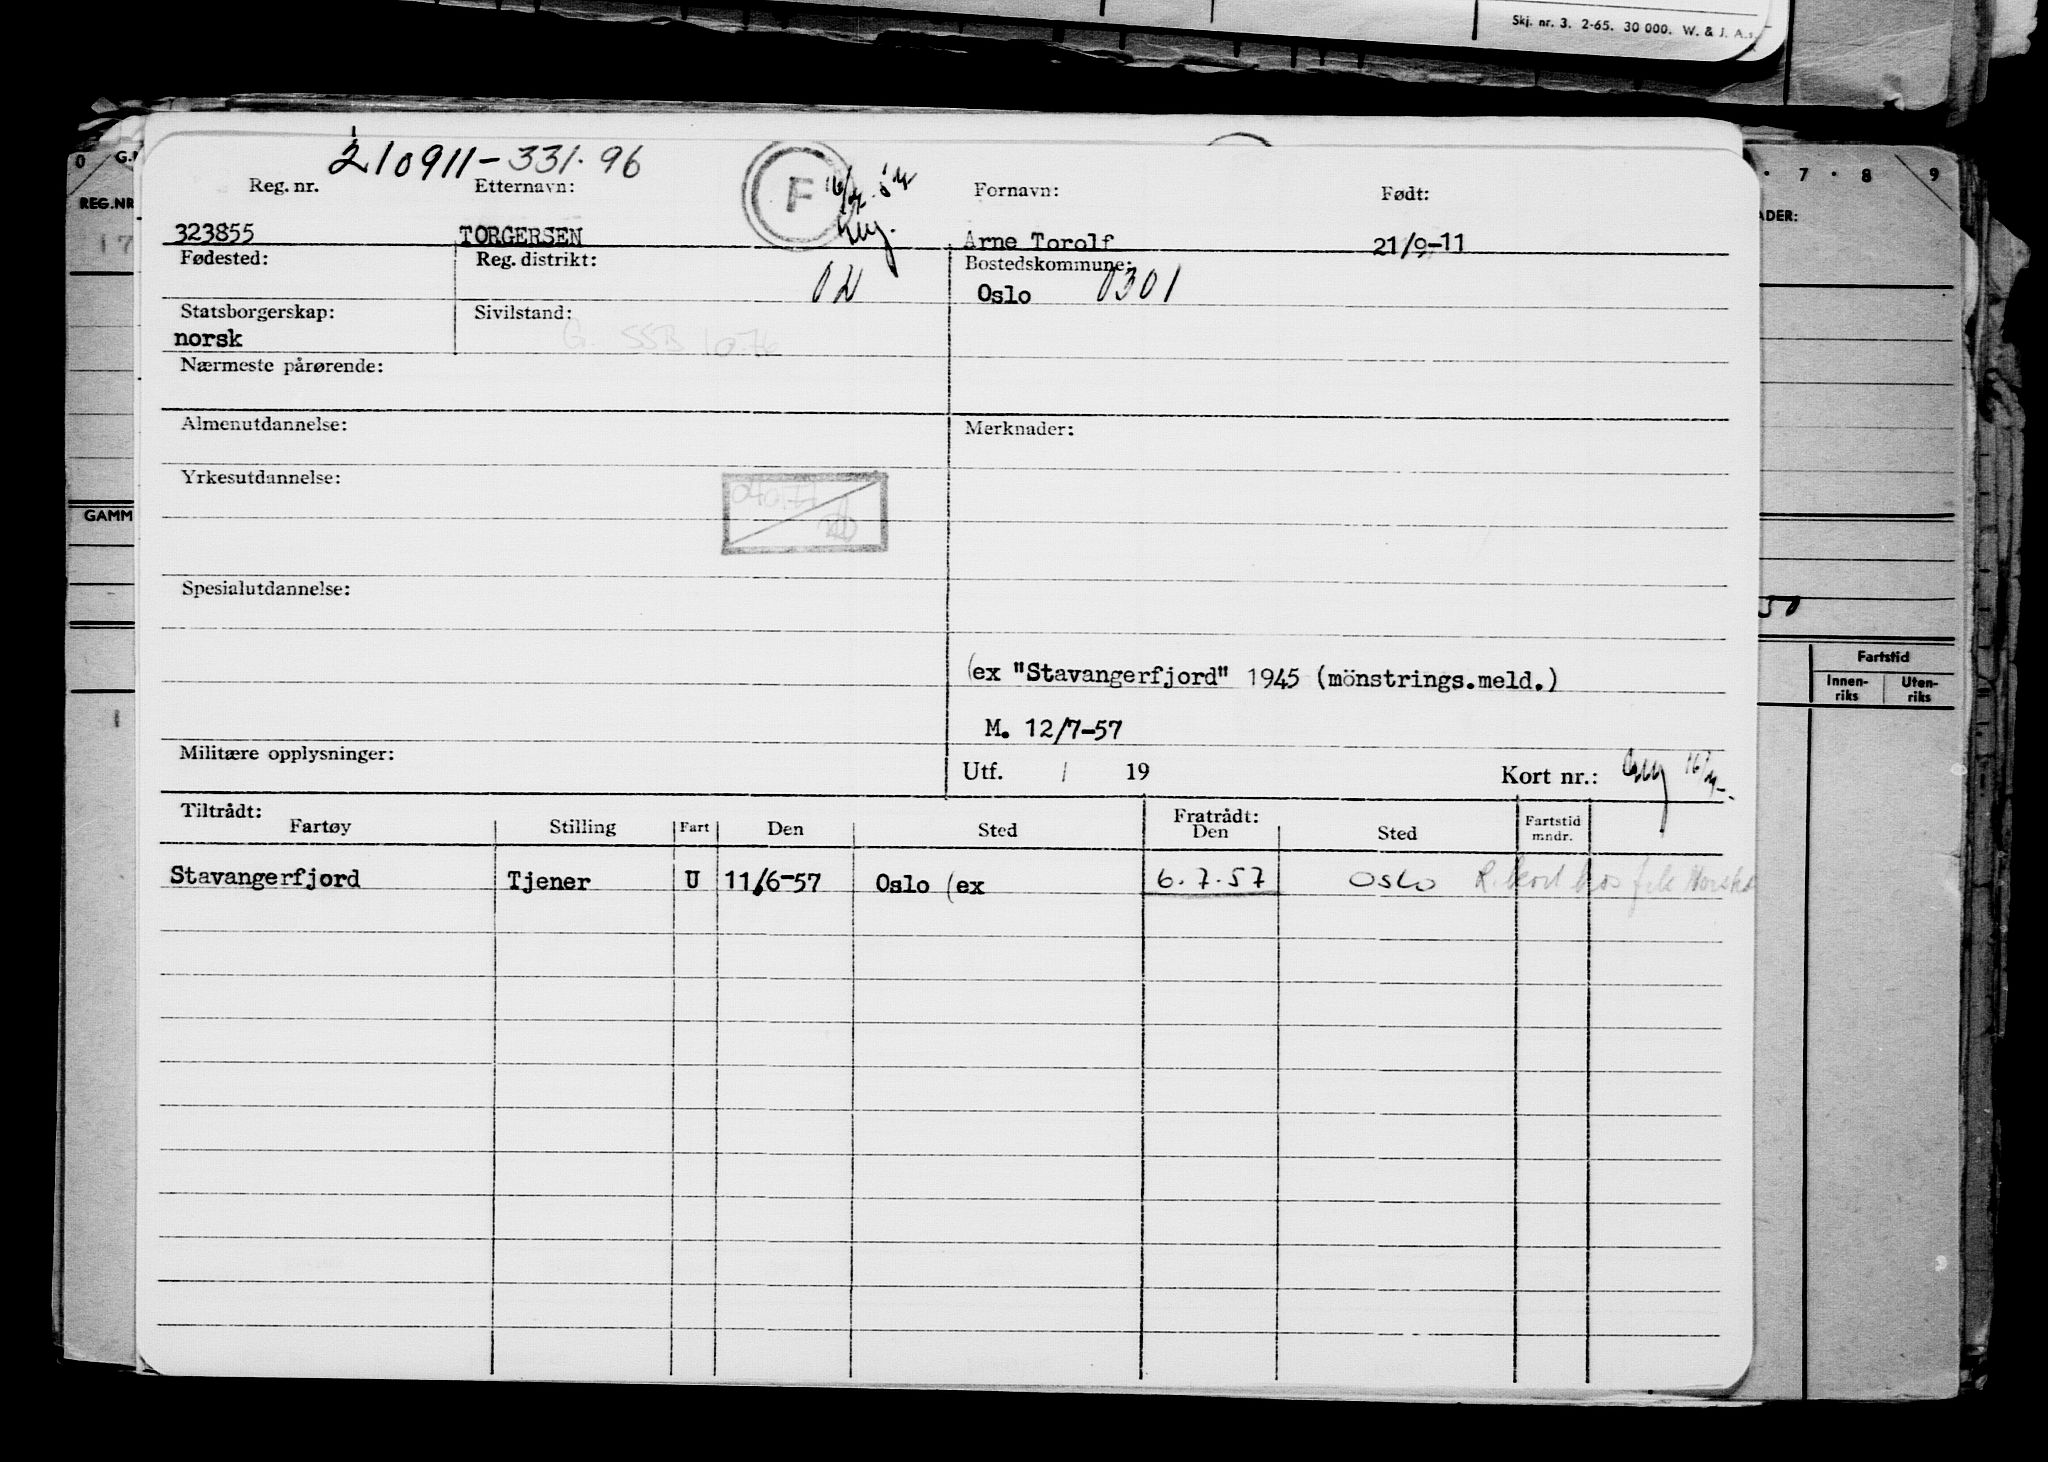 Skj. nr. 3. 2-65. 30 000. W. & J. A.s.
210911-331.96
Reg. nr. Etternavn: F Fornavn: Født:
323855 TORGERSEN Arne Torolf 21/9-11
Fødested: Reg. distrikt: 02 Bostedskommune:
Oslo 0301
Statsborgerskap: Sivilstand:
norsk G. SSB 10.76
Nærmeste pårørende:
Almenutdannelse: Merknader:
Yrkesutdannelse:
Spesialutdannelse:
(ex "Stavangerfjord" 1945 (mönstrings.meld.)
M. 12/7-57
Militære opplysninger: Utf. / 19 Kort nr.:
Tiltrådt: Fratrådt:
Fartøy Stilling Fart Den Sted Den Sted Fartstid mndr.
Stavangerfjord Tjener U 11/6-57 Oslo (ex 6.7.57 OSLO
REG.NR
GAMM
7 · 8 9
ADER:
50
Fartstid
Innen-
riks
Uten-
riks